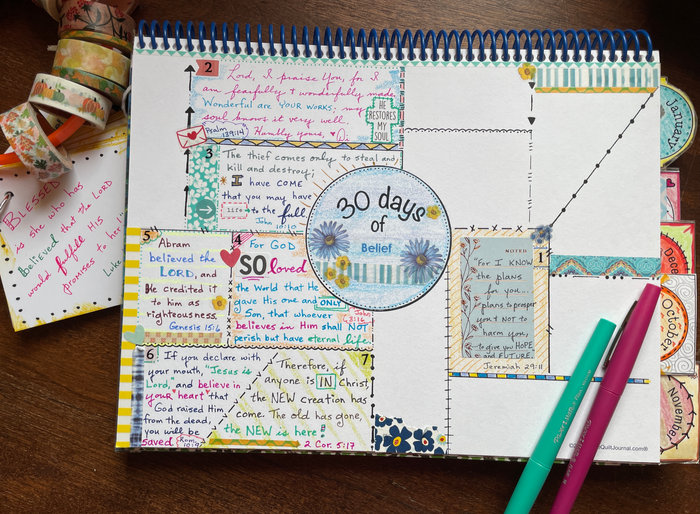 2
Lord, I praise You, for I
am fearfully & wonderfully made.
Wonderful are YOUR WORKS; my
soul knows it very well.
Psalm
139:14
Humbly yours, ♥ Di
HE
RESTORES
MY
SOUL
3
The thief comes only to steal and
kill and destroy;
I have COME
that you may have
life to the full
John
10:10
30 days
of
Belief
5
Abram
believed the
LORD, and
He credited it
to him as
righteousness.
Genesis 15:6
4
For GOD
SO loved
the World that He
gave His one and ONLY
Son, that whoever
John
3:16
believes in Him shall NOT
perish but have eternal life
6
If you declare with
your mouth, "Jesus is
Lord," and believe in
your "heart" that
GOD raised Him
from the dead,
you will be
saved
Rom.
7
Therefore, if
anyone is IN Christ
the NEW creation has
come. The old has gone,
the NEW is here!
2 Cor. 5:17
NOTED
1
For I KNOW
the plans
for you...
plans to prosper
you & NOT to
harm you,
to give you HOPE
and FUTURE.
Jeremiah 29:11
QuiltJournal.com®
BLESSED
is she who has
believed that the LORD
would fulfill His
promises to her!
Luke
January
Dece
October
November